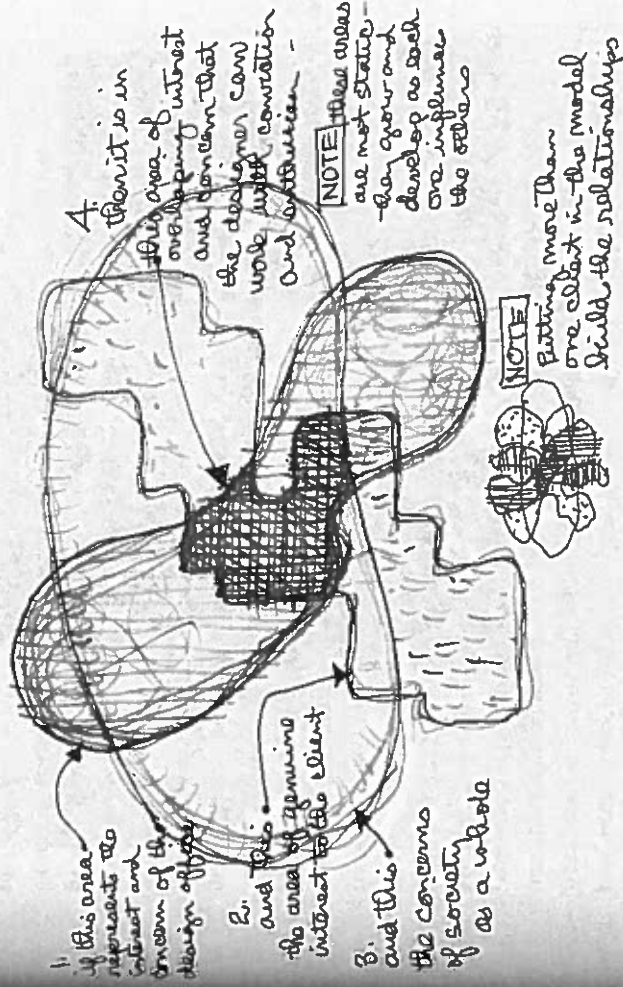 1.
if this area
represents the
interest and
concern of the
design office
2.
and this
the area of genuine
interest to the client
3.
and this
the concerns
of society
as a whole
4.
then it is in
this area of
overlapping interest
and concern that
the designer can
work with conviction
and enthusiasm -
NOTE these areas
are not static -
they grow and
develop as each
one influences
the others
NOTE
Putting more than
one client in the model
builds the relationships